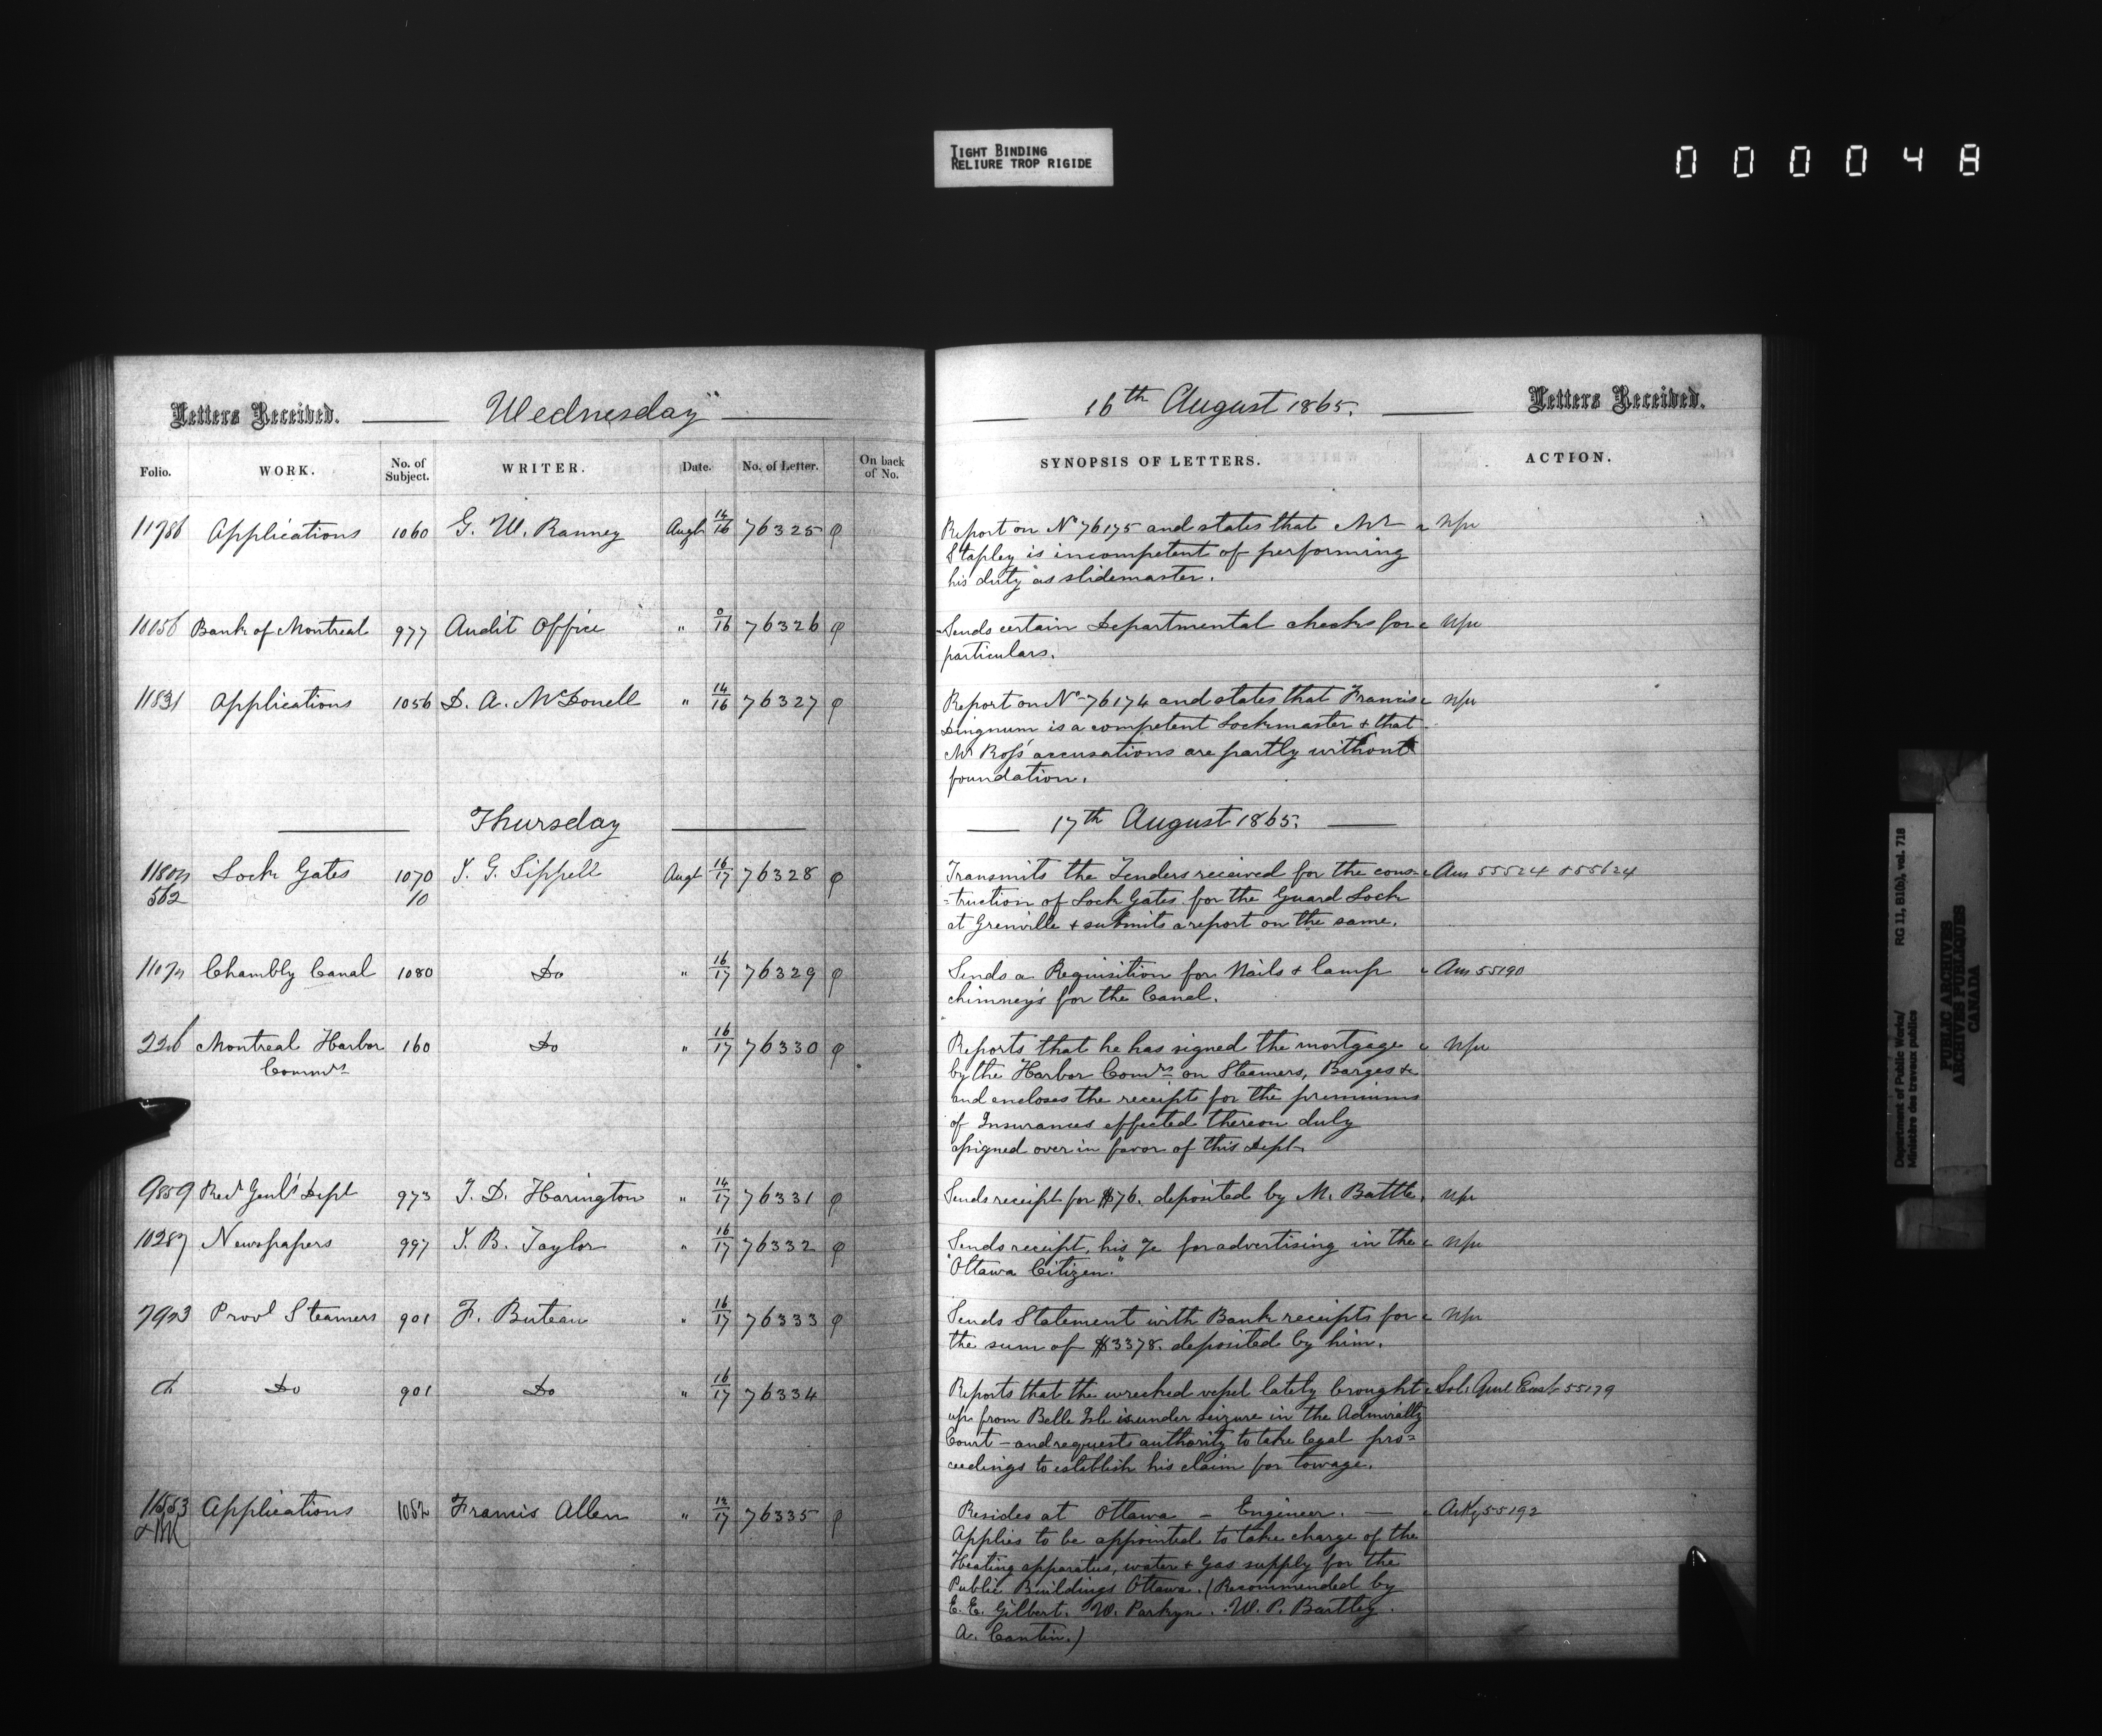 TIGHT BINDING
RELIURE TROP RIGIDE
000048
Letters Received. Wednesday
Folio. WORK. No. of Subject. WRITER. Date. No. of Letter. On back of No.
11786 Applications 1060 G. W. Ranney Augt 14/16 76325
Bank of Montreal 977 Audit Office " 9/16 76326
11831 Applications 1056 D. A. McDonell " 14/16 76327
Thursday
Lock Gates 1070 G. Sippell Augt 16/17 76328
562 10
Chambly Canal 1080 Do " 16/17 76329
226 Montreal Harbor 160 Do " 16/17 76330
Commrs
9859 Recr Genl's Dept 973 T. D. Harington " 14/17 76331
10287 Newspapers 997 B. Taylor " 16/17 76332
7923 Provl Steamers 901 F. Buteau " 16/17 76333
Do 901 Do " 16/17 76334
Applications 1052 Francis Allen " 12/17 76335
16th August 1865. Letters Received.
SYNOPSIS OF LETTERS. ACTION.
Report on No 76175 and states that Mr
Stapley is incompetent of performing
his duty as slidemaster.
Sends certain Departmental checks for
particulars.
Report on No 76174 and states that Francis
Dingnum is a competent Lockmaster & that
Mr Ross' accusations are partly without
foundation.
17th August 1865.
Transmits the Tenders received for the cons- Ans 55524 & 55624
=truction of Lock Gates for the Guard Lock
at Grenville & submits a report on the same.
Sends a Requisition for Nails & lamp Ans 55190
chimney's for the Canal.
Reports that he has signed the mortgage
by the Harbor Comrs on Steamers, Barges &c
and encloses the receipts for the premiums
of Insurances effected thereon duly
assigned over in favor of this Dept.
Sends receipt for $76. deposited by M. Battle.
Sends receipt, his for advertising in the
"Ottawa Citizen."
Sends Statement with Bank receipts for
the sum of $3378. deposited by him.
Reports that the wrecked vessel lately brought Sol: Genl East 55179
up from Belle Isle is under seizure in the Admiralty
Court – and requests authority to take legal pro=
ceedings to establish his claim for towage.
Resides at Ottawa – Engineer. — Ackg 55192
Applies to be appointed to take charge of the
Heating apparatus, water & Gas supply for the
Public Buildings Ottawa. (Recommended by
E. E. Gilbert. W. Parkyn. W. P. Bartley.
A. Cantin.)
Department of Public Works/ RG 11, B1(b), vol. 718
Ministère des travaux publics
PUBLIC ARCHIVES
ARCHIVES PUBLIQUES
CANADA